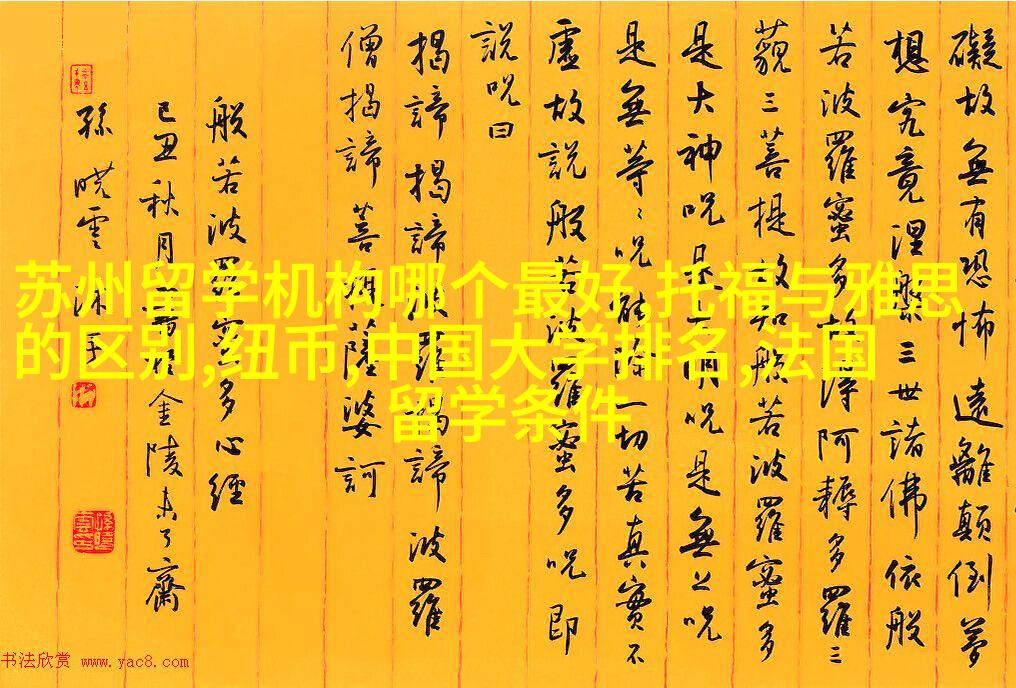 礙故無有恐怖遠離顛倒夢
想究竟涅槃三世諸佛依般
若波羅蜜多故得阿耨多羅三
藐三菩提故知般若波羅蜜多
是大神呪是大明呪是無上呪
是無等〻呪能除一切苦真實不
虛故説般若波羅蜜多呪即
説呪曰
揭諦揭諦般羅揭諦波羅
僧揭諦菩提薩婆訶
般若波羅蜜多心經
己丑秋月於金陵未了齋
孫曉雲沐手
苏州留学机构哪个最好,托福与雅思
的区别,纽币,中国大学排名,法国
留学条件
书法欣赏 www.yac8.com